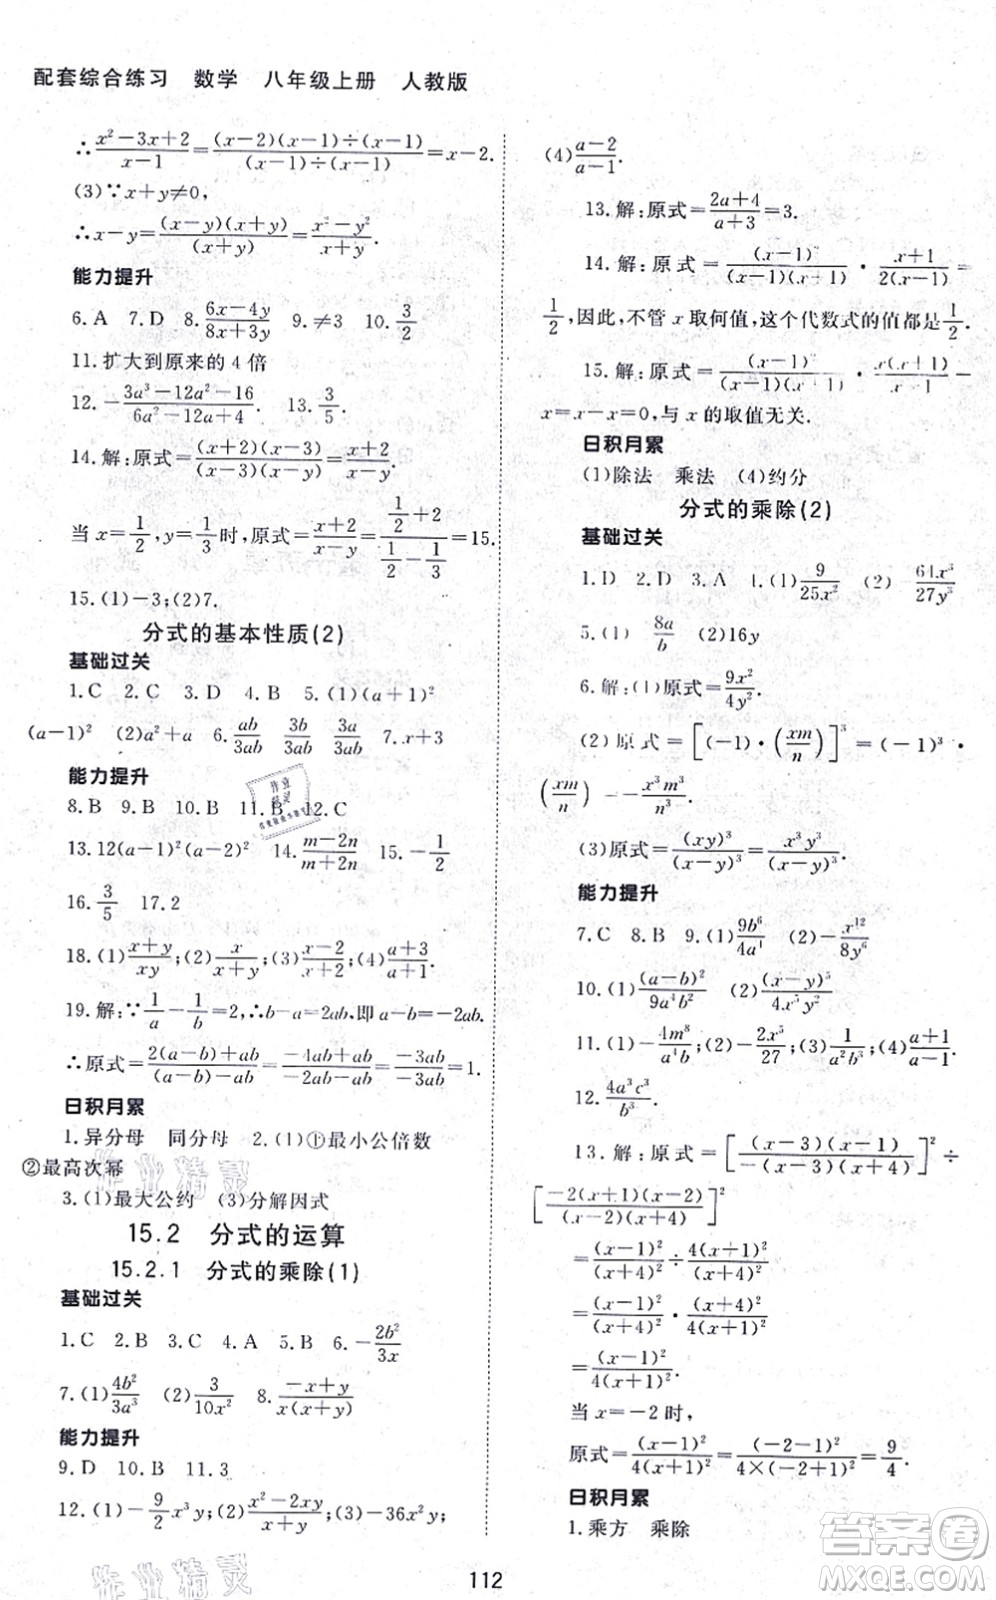 配套综合练习 数学 八年级上册 人教版
∴(x²-3x+2)/(x-1)=((x-2)(x-1)÷(x-1))/((x-1)÷(x-1))=x-2.
(3)∵x+y≠0,
∴x-y=((x-y)(x+y))/(x+y)=(x²-y²)/(x+y).
能力提升
6.A 7.D 8.(6x-4y)/(8x+3y) 9.≠3 10.3/2
11.扩大到原来的4倍
12.-(3a³-12a²-16)/(6a²-12a+4). 13.3/5.
14.解:原式=((x+2)(x-3))/((x-3)(x-y))=(x+2)/(x-y).
当x=1/2,y=1/3时,原式=(x+2)/(x-y)=(1/2+2)/(1/2-1/3)=15.
15.(1)-3;(2)7.
分式的基本性质(2)
基础过关
1.C 2.B 3.D 4.B 5.(1)(a+1)²
(a-1)² (2)a²+a 6.ab/3ab 3b/3ab 3a/3ab 7.x+3
能力提升
8.B 9.B 10.A 11.B 12.C
13.12(a-1)²(a-2)² 14.(m-2n)/(m+2n) 15.-1/2
16.3/5 17.2
18.(1)(x+y)/xy;(2)x/(x+y);(3)(x-2)/x;(4)(a+3)/(a+1)
19.解:∵1/a-1/b=2,∴b-a=2ab,即a-b=-2ab.
∴原式=(2(a-b)+ab)/((a-b)-ab)=(-4ab+ab)/(-2ab-ab)=(-3ab)/(-3ab)=1.
日积月累
1.异分母 同分母 2.(1)①最小公倍数
②最高次幂
3.(1)最大公约 (3)分解因式
15.2 分式的运算
15.2.1 分式的乘除(1)
基础过关
1.C 2.B 3.C 4.A 5.B 6.-2b²/3x
7.(1)4b²/3a³ (2)3/10x² 8.(-x+y)/(x(x+y))
能力提升
9.D 10.B 11.3
12.(1)-9/2x³y;(2)(x²-2xy)/(x+y);(3)-36x²y;
(4)(a-2)/(a-1).
13.解:原式=(2a+4)/(a+3)=3.
14.解:原式=(x-1)²/((x-1)(x+1))·(x+1)/(2(x-1))=
1/2,因此,不管x取何值,这个代数式的值都是1/2.
15.解:原式=(x-1)²/((x-1)(x+1))·x(x+1)/(x-1)-
x=x-x=0,与x的取值无关.
日积月累
(1)除法 乘法 (4)约分
分式的乘除(2)
基础过关
1.D 2.D 3.A 4.(1)9/25x² (2)64x³/27y³
5.(1)8a/b (2)16y
6.解:(1)原式=9x²/4y².
(2)原式=[(-1)·(xm/n)]³=(-1)³·
(xm/n)³=-x³m³/n³.
(3)原式=(xy)³/(x-y)³=x³y³/(x-y)³.
能力提升
7.C 8.B 9.(1)9b⁶/4a⁴ (2)-x¹²/8y⁶
10.(1)(a-b)²/9a⁴b² (2)(x-y)⁵/4x⁵y²
11.(1)-4m⁸/a²b;(2)-2x⁵/27;(3)1/a²b³;(4)(a+1)/(a-1)
12.4a³c³/b³.
13.解:原式=[(x-3)(x-1)/(-(x-3)(x+4))]²÷
[-2(x+1)(x-2)/((x-2)(x+4))]²
=(x-1)²/(x+4)²÷4(x+1)²/(x+4)²
=(x-1)²/(x+4)²·(x+4)²/4(x+1)²
=(x-1)²/4(x+1)²
当x=-2时,
原式=(x-1)²/4(x+1)²=(-2-1)²/(4×(-2+1)²)=9/4.
日积月累
1.乘方 乘除
112
答案卷
MXQE.COM
作业精灵